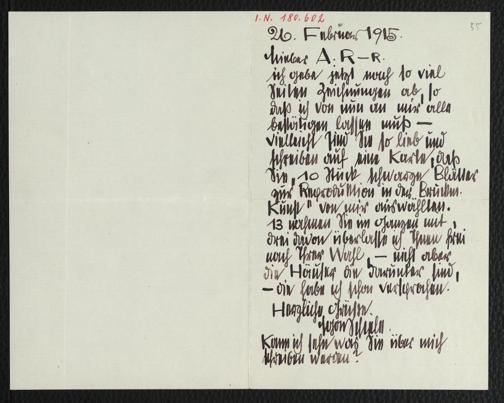 I.N. 180.602
55
26. Februar 1915.
Lieber A. R–R.
ich gebe jetzt nach so viel
Seiten Zeichnungen ab, so
daß ich von nun an mir alle
bestätigen lassen muß —
vielleicht sind Sie so lieb und
schreiben auf eine Karte, daß
Sie „10 Stück schwarze Blätter
zur Reproduktion in der Bruckm.
Kunst" von mir auswählten.
13 nahmen Sie im ganzen mit,
drei davon überlasse ich Ihnen frei
nach Ihrer Wahl, — nicht aber
die Häuser die darunter sind,
— die habe ich schon versprochen.
Herzliche Grüsse.
Egon Schiele.
Kann ich sehn was Sie über mich
schreiben werden?